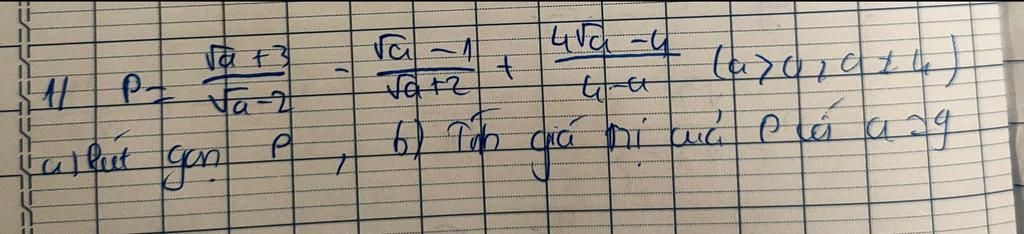 1) P = \frac{\sqrt{a}+3}{\sqrt{a}-2} - \frac{\sqrt{a}-1}{\sqrt{a}+2} + \frac{4\sqrt{a}-4}{4-a} (a > 0, a ≠ 4)
a) Rút gọn P, b) Tính giá trị của P với a = 9